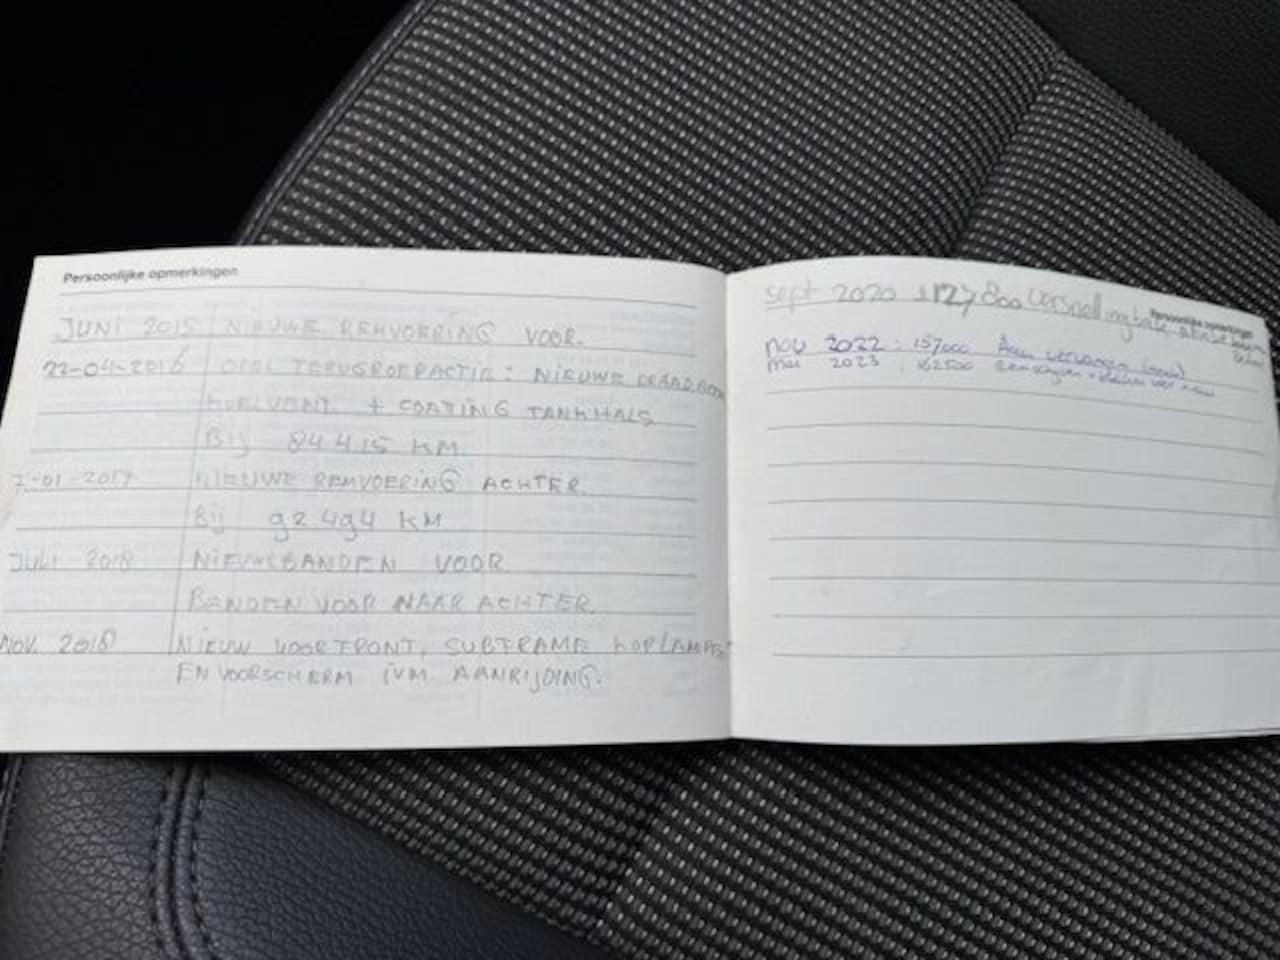 Persoonlijke opmerkingen
JUNI 2015 NIEUWE REMVOERING VOOR.
22-04-2016 OPEL TERUGROEPACTIE: NIEUWE DRAADBOOM
KOELVENT. + COATING TANKHALS
Bij 84 415 KM.
-01-2017 NIEUWE REMVOERING ACHTER.
Bij 92 494 KM
JULI 2018 NIEUWE BANDEN VOOR
BANDEN VOOR NAAR ACHTER.
NOV. 2018 NIEUW VOORFRONT, SUBFRAME KOPLAMPEN
EN VOORSCHERM IVM. AANRIJDING.
Persoonlijke opmerkingen
sept 2020 127800 versnelling
nov 2022 : 157000 vervangen
mei 2023 : 162500